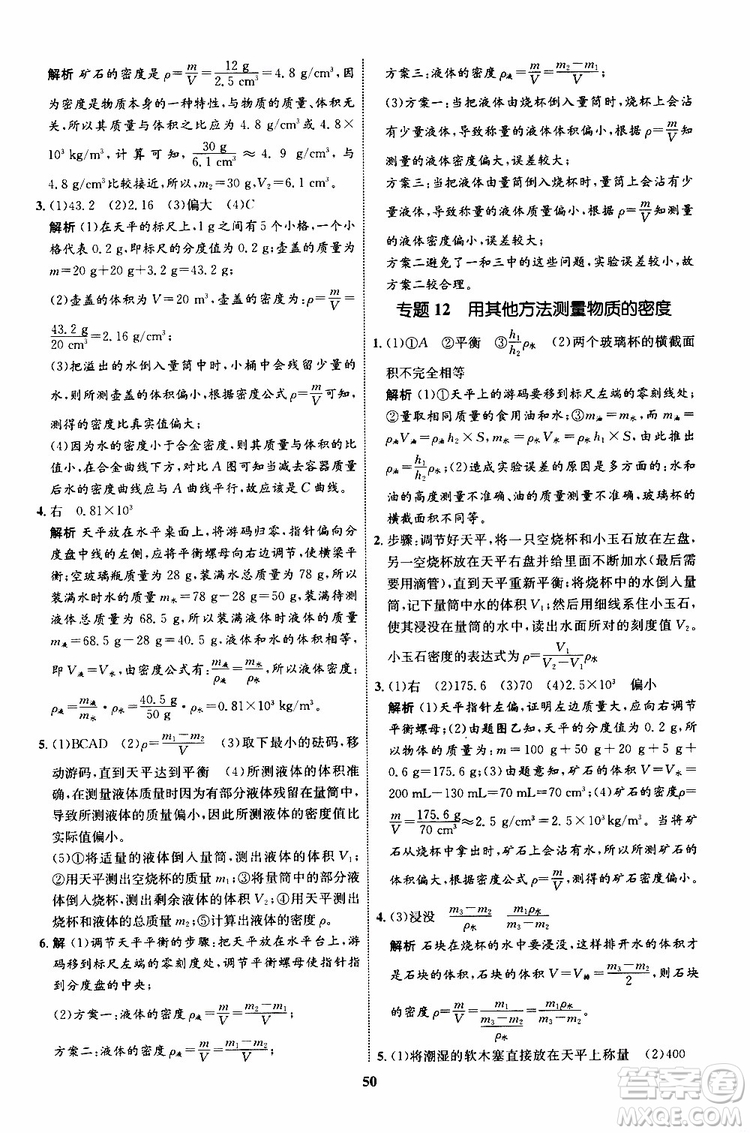 解析 矿石的密度是 ρ=m/V=12 g/2.5 cm³=4.8 g/cm³，因
为密度是物质本身的一种特性，与物质的质量、体积无
关，所以其质量与体积之比应为 4.8 g/cm³ 或 4.8×
10³ kg/m³，计算可知 30 g/6.1 cm³≈4.9 g/cm³，与
4.8 g/cm³ 比较接近，所以，m₂=30 g，V₂=6.1 cm³。
3. (1)43.2 (2)2.16 (3)偏大 (4)C
解析 (1)在天平的标尺上，1 g 之间有 5 个小格，一个小
格代表 0.2 g，即标尺的分度值为 0.2 g；壶盖的质量为
m=20 g+20 g+3.2 g=43.2 g；
(2)壶盖的体积为 V=20 cm³，则壶盖的密度为 ρ=m/V=
43.2 g/20 cm³=2.16 g/cm³；
(3)把溢出的水倒入量筒中时，小桶中会残留一部分
水，所测壶盖的体积偏小，根据密度公式 ρ=m/V可知，
测得的密度比真实值偏大；
(4)因为水的密度小于合金密度，所以水的质量与体积的比
值小，在合金曲线下方，对比 A 图可知当减去容器质量
后水的密度曲线应与 A 曲线平行，故应该是 C 曲线。
4. 右 0.81×10³
解析 天平放在水平桌面上，将游码归零，指针偏向分
度盘中线的左侧，应将平衡螺母向右端调节，使横梁平
衡；空玻璃瓶质量为 28 g，装满水质量为 78 g，装满待测
液体质量为 68.5 g，装满液体时液体的质量 m液=
68.5 g−28 g=40.5 g，装满水时水的质量 m水=78 g−
28 g=50 g。用此瓶子装满水和液体时，两者体积相同，
即 V液=V水，由密度公式有：m液/ρ液=m水/ρ水，则液体密度：
ρ液=m液/m水·ρ水=40.5 g/50 g·ρ水=0.81×10³ kg/m³。
5. (1)BCAD (2)ρ=(m₁−m₂)/V (3)取下最小的砝码，移
动游码，直到天平达到平衡 (4)所测液体的体积准
确，在测量液体质量时，有部分液体残留在量筒里，
导致所测液体的质量偏小，因此所测液体的密度值比
实际值偏小。
(5)①将适量的液体倒入量筒，测出液体的体积 V₁；
②用天平测出空烧杯的质量 m₁；③将量筒中的部分液
体倒入烧杯，测出剩余液体的体积 V₂；④用天平测出
烧杯和液体的总质量 m₂；⑤计算出液体的密度 ρ。
6. 解 (1)调节天平平衡的步骤：把天平放在水平台上，游
码移到标尺左端的零刻度处，调节平衡螺母使指针指在分
度盘的中央；
(2)方案一：液体的密度 ρ液=m/V=(m₂−m₁)/V
方案二：液体的密度 ρ液=m/V=(m₁−m₂)/V
方案三：液体的密度 ρ液=m/V=(m₂−m₁)/V
(3)方案一：当把液体由烧杯倒入量筒时，烧杯上会沾
有少量液体，导致量筒的液体体积偏小，根据 ρ=m/V可知
测量的液体密度偏大，误差较大；
方案三：当把液体由量筒倒入烧杯时，量筒上会沾有少量
液体，导致称量的液体质量偏小，根据 ρ=m/V可知测量的
液体密度偏小，误差较大；
方案二避免了一和三中出现的问题，实验误差较小，方案
二比较合理。
专题 12 用其他方法测量物质的密度
1. (1)①A ②平衡 ③h₁/h₂ρ水 (2)两个玻璃杯的横截面
积不完全相等
解析 (1)①天平上的游码要移至标尺左端的零刻线处；
②量取相同质量的食用油和水；③m油=m水，而 m油=
ρ油V油=ρ油h₂×S，m水=ρ水V水=ρ水h₁×S，由此推出
ρ油=h₁/h₂ρ水；(2)造成实验误差的原因可能有很多，如水和
油的高度测量不准、水和油的质量不相等、玻璃杯的
横截面积不同等。
2. 步骤：调节好天平，将装有水的一空烧杯和小玉石放在左
盘，另一空烧杯放在天平右盘并向其中加水至天平平衡
(使用滴管)，将烧杯中水全部倒入量
筒，记下量筒中水的体积 V₁；然后用细线系住小玉石，
使其浸没在量筒的水中，读出水面对应的刻度值 V₂。
小玉石密度的表达式为 ρ=V₁/(V₂−V₁)ρ水
3. (1)右 (2)175.6 (3)70 (4)2.5×10³ 偏小
解析 (1)天平指针偏左，证明左端质量大，应向右调节
平衡螺母；(2)由题图乙知，天平的分度值为 0.2 g，
所以物体的质量 m=100 g+50 g+20 g+5 g+
0.6 g=175.6 g；(3)由题意知，矿石的体积 V=V水=
200 mL−130 mL=70 mL；(4)矿石的密度 ρ=
m/V=175.6 g/70 cm³≈2.5 g/cm³=2.5×10³ kg/m³；从矿
石从烧杯中拿出来时，矿石上会沾有水，所以所测矿石的
体积会偏大，由密度公式 ρ=m/V，测得的矿石密度偏小。
4. (3)浸没 (m₃−m₂)/ρ水
解析 石块在烧杯的水中要浸没，这样排开水的体积才
是石块的体积；石块的体积 V=V排=，则石块
的密度 ρ=m₁/V=m₁ρ水/(m₃−m₂)
5. (1)将潮湿的软木塞直接放在天平上称量 (2)400
50
答案圈
MXQE.COM